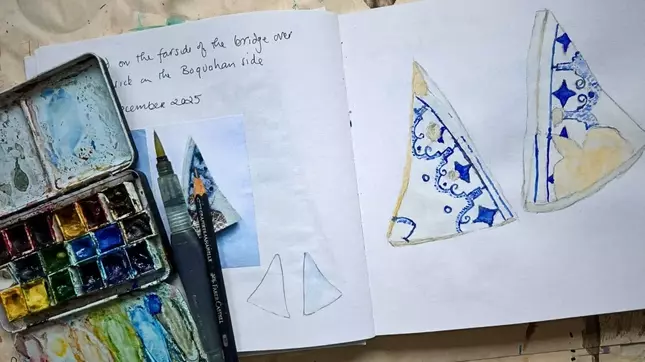 on the farside of the bridge over
on the Boquohan side
2025
FABER-CASTELL